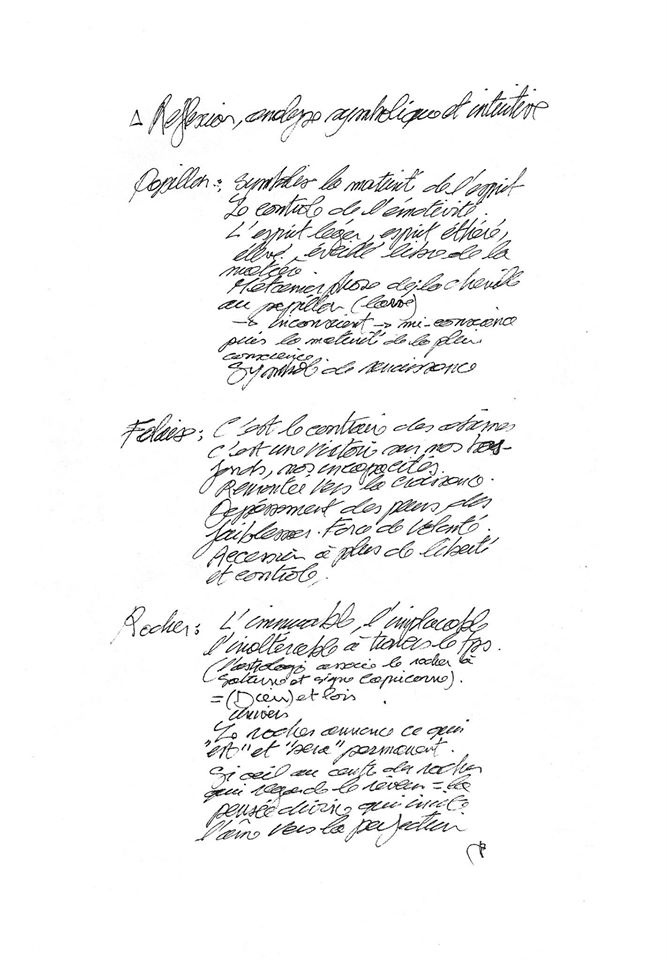 Δ Réflexion, analyse symbolique et intuitive
Papillon : symbolise la maturité de l'esprit
Le controle de l'émotivité.
L'esprit léger, esprit éthéré,
élevé, éveillé libre de la
matière.
Métamorphose de la chenille
au papillon (larve)
→ inconscient → mi-conscience
puis la maturité de la pleine
conscience.
Symbole de renaissance
Falaise : C'est le contraire des abîmes
c'est une victoire sur nos bas-
fonds, nos incapacités.
Remontée vers la croissance.
Dépassement des peurs, des
faiblesses. Force de volonté.
Accession à plus de liberté
et controle.
Rocher : L'immuable, l'implacable
l'inaltérable à travers le tps.
(l'astrologie associe le rocher à
Saturne et signe Capricorne).
= (Dieu) et lois
univers
Le rocher annonce ce qui
"est" et "sera" permanent.
Si oeil au centre du rocher
qui regarde le rêveur = la
pensée divine qui incite
l'âme vers la perfection